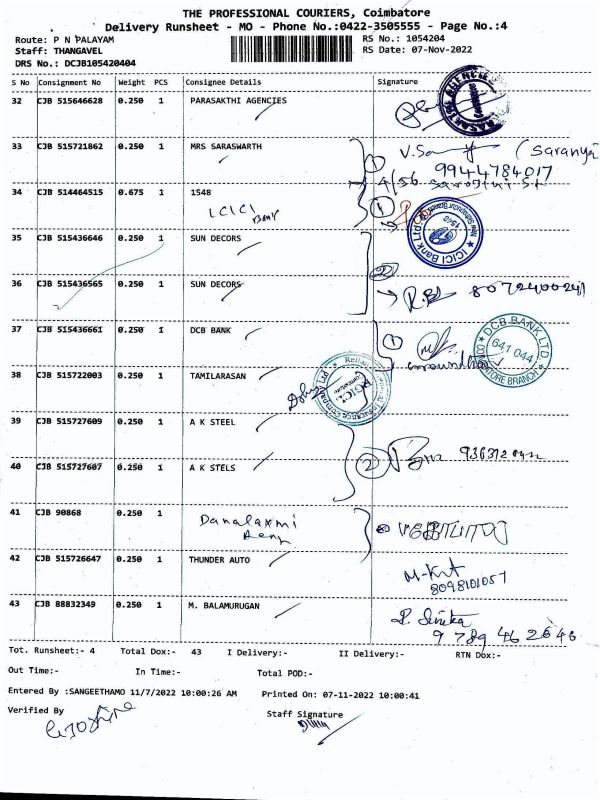 THE PROFESSIONAL COURIERS, Coimbatore
Delivery Runsheet - MO - Phone No.:0422-3505555 - Page No.:4
Route: P N PALAYAM RS No.: 1054204
Staff: THANGAVEL RS Date: 07-Nov-2022
DRS No.: DCJB105420404
S No Consignment No Weight PCS Consignee Details Signature
32 CJB 515646628 0.250 1 PARASAKTHI AGENCIES
33 CJB 515721862 0.250 1 MRS SARASWARTH
1 (Saranya)
9944784017
4/56 Sarojini St
34 CJB 514464515 0.675 1 1548
ICICI Bank 1
ICICI Bank Ltd
35 CJB 515436646 0.250 1 SUN DECORS
2
36 CJB 515436565 0.250 1 SUN DECORS
8072400241
37 CJB 515436661 0.250 1 DCB BANK 1
DCB BANK LTD
641 044
COIMBATORE BRANCH
38 CJB 515722003 0.250 1 TAMILARASAN
39 CJB 515727609 0.250 1 A K STEEL
2
40 CJB 515727607 0.250 1 A K STELS
41 CJB 90868 0.250 1 Danalaxmi
42 CJB 515726647 0.250 1 THUNDER AUTO
8098101057
43 CJB 88832349 0.250 1 M. BALAMURUGAN
9 789 462646
Tot. Runsheet:- 4 Total Dox:- 43 I Delivery:- II Delivery:- RTN Dox:-
Out Time:- In Time:- Total POD:-
Entered By :SANGEETHAMO 11/7/2022 10:00:26 AM Printed On: 07-11-2022 10:00:41
Verified By Staff Signature